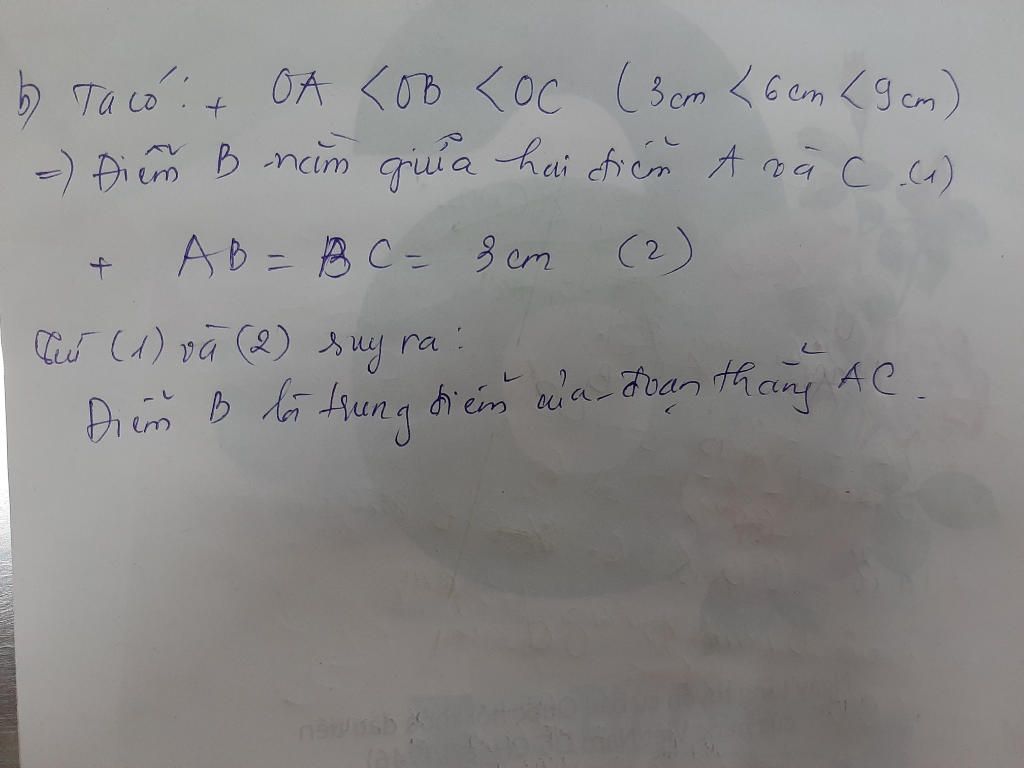 b) Ta có: + OA < OB < OC (3cm < 6cm < 9cm)
=) Điểm B nằm giữa hai điểm A và C. (1)
+ AB = BC = 3cm (2)
Từ (1) và (2) suy ra:
Điểm B là trung điểm của đoạn thẳng AC.